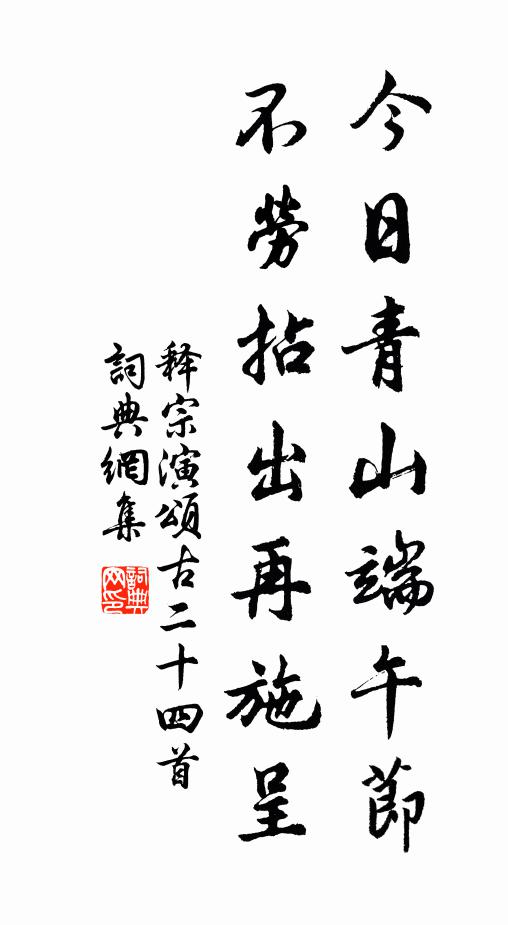 今日青山端午節
不勞拈出再施呈
释宗演頌古二十四首
詞典網集
詞典網印